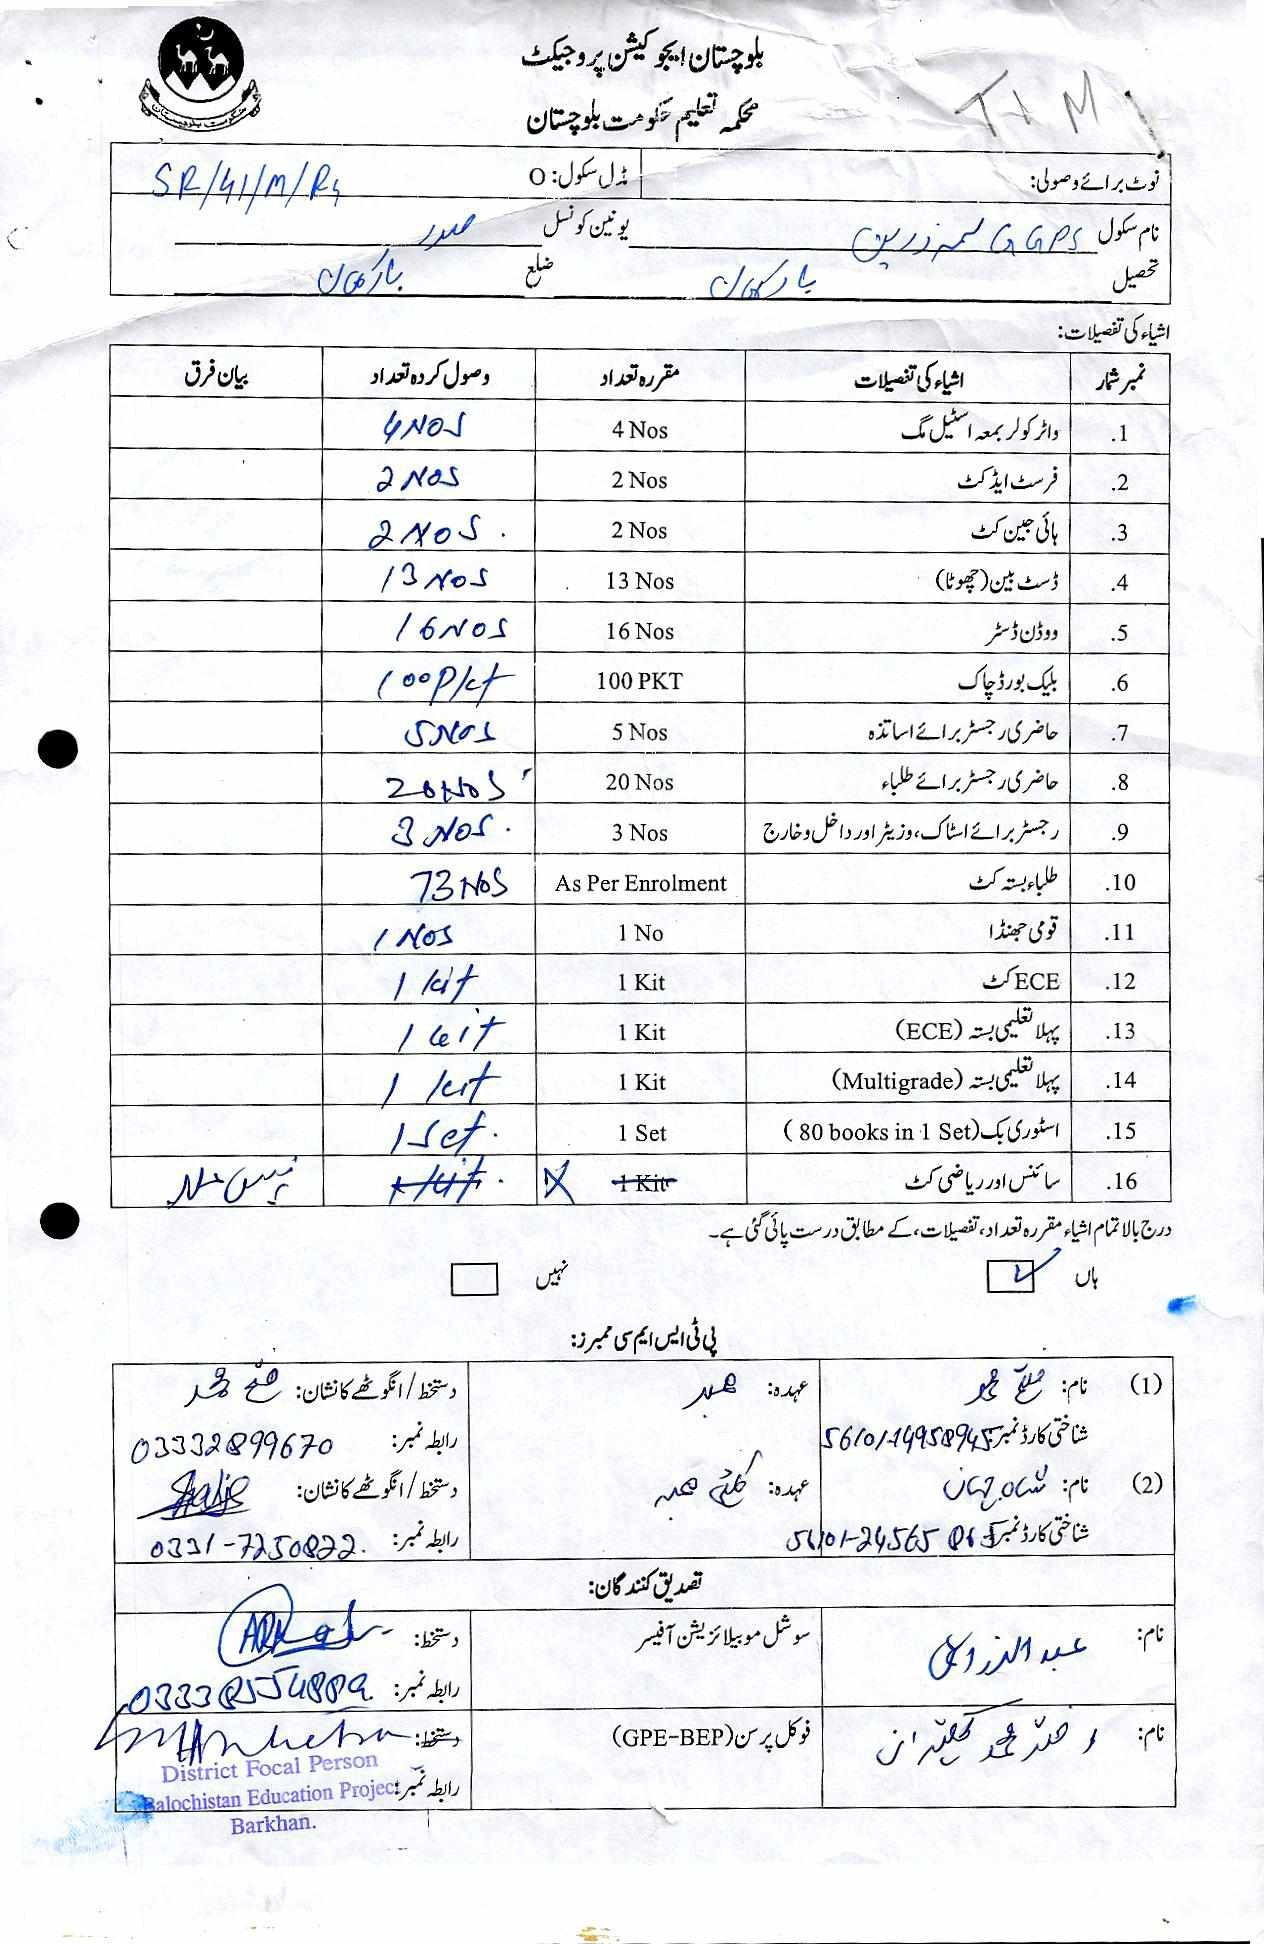 بلوچستان ایجوکیشن پروجیکٹ
محکمہ تعلیم حکومت بلوچستان
T+M
نوٹ برائے وصولی: مڈل سکول: O SR/41/M/R4
نام سکول GGPS یونین کونسل صدر
تحصیل بارکھان ضلع بارکھان
اشیاء کی تفصیلات:
نمبر شمار اشیاء کی تفصیلات مقررہ تعداد وصول کردہ تعداد بیان فرق
1. واٹر کولر بمعہ اسٹیل مگ 4 Nos 4 NOS
2. فرسٹ ایڈ کٹ 2 Nos 2 NOS
3. ہائی جین کٹ 2 Nos 2 NOS.
4. ڈسٹ بین (چھوٹا) 13 Nos 13 NOS
5. ووڈن ڈسٹر 16 Nos 16 NOS
6. بلیک بورڈ چاک 100 PKT 100 P/kt
7. حاضری رجسٹر برائے اساتذہ 5 Nos 5 NOS
8. حاضری رجسٹر برائے طلباء 20 Nos 20 NOS
9. رجسٹر برائے اسٹاک، وزیٹر اور داخل و خارج 3 Nos 3 NOS.
10. طلباء بستہ کٹ As Per Enrolment 73 NOS
11. قومی جھنڈا 1 No 1 NOS
12. ECE کٹ 1 Kit 1 kit
13. پہلا تعلیمی بستہ (ECE) 1 Kit 1 kit
14. پہلا تعلیمی بستہ (Multigrade) 1 Kit 1 kit
15. اسٹوری بک (80 books in 1 Set) 1 Set 1 Set.
16. سائنس اور ریاضی کٹ 1 Kit 1 kit. نہیں ملا
درج بالا تمام اشیاء مقررہ تعداد، تفصیلات، کے مطابق درست پائی گئی ہے۔
ہاں ✓ نہیں
پی ٹی ایس ایم سی ممبرز:
(1) نام: عہدہ: ممبر دستخط / انگوٹھے کا نشان:
شناختی کارڈ نمبر: رابطہ نمبر: 03332899670
(2) نام: شاہ جہان عہدہ: دستخط / انگوٹھے کا نشان:
شناختی کارڈ نمبر: رابطہ نمبر: 0331-7250822.
تصدیق کنندگان:
نام: عبدالرزاق سوشل موبیلائزیشن آفیسر دستخط:
رابطہ نمبر: 03338554889
نام: فوکل پرسن (GPE-BEP) دستخط:
رابطہ نمبر:
District Focal Person
Balochistan Education Project
Barkhan.